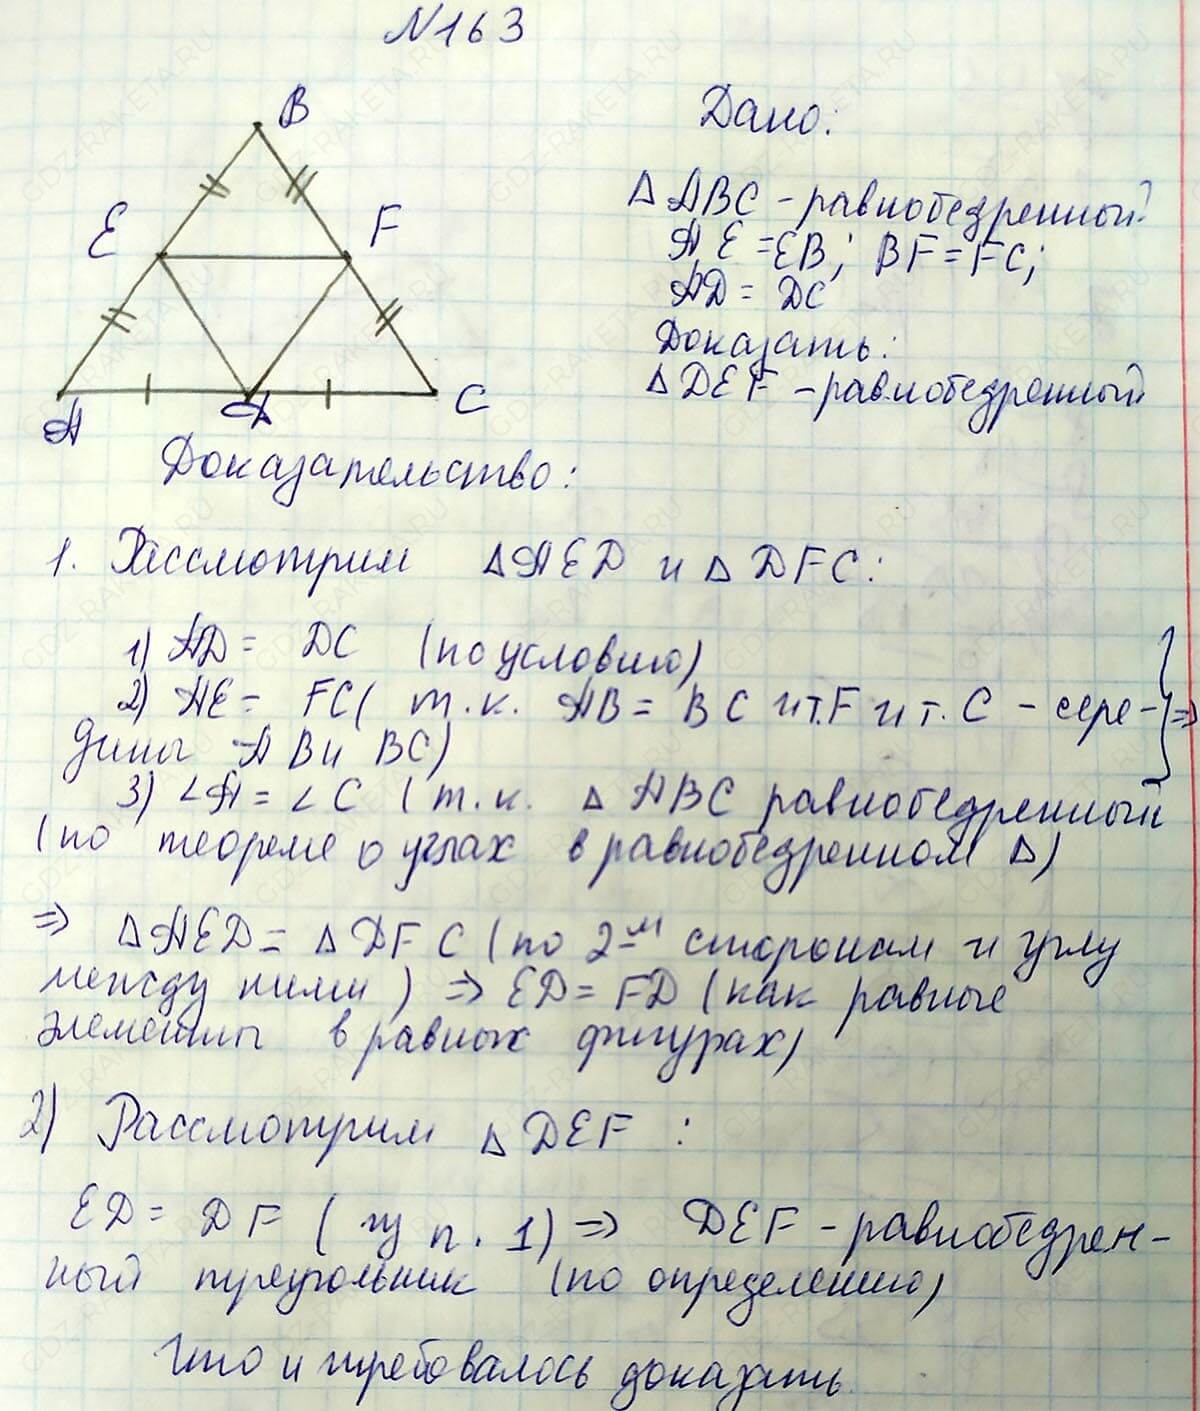 N163
B
E
F
A
D
C
Дано:
Δ ABC - равнобедренный
AE = EB; BF = FC;
AD = DC
Доказать:
Δ DEF - равнобедренный
Доказательство:
1. Рассмотрим Δ AED и Δ DFC:
1) AD = DC (по условию)
2) AE = FC (т.к. AB = BC и т.F и т.C - сере-
дины AB и BC)
} =>
3) ∠A = ∠C (т.к. Δ ABC равнобедренный
(по теореме о углах в равнобедренном Δ)
=> Δ AED = Δ DFC (по 2-м сторонам и углу
между ними) => ED = FD (как равные
элементы в равных фигурах)
2) Рассмотрим Δ DEF:
ED = DF (из п. 1) => DEF - равнобедрен-
ный треугольник (по определению)
Что и требовалось доказать.
GDZ-RAKETA.RU